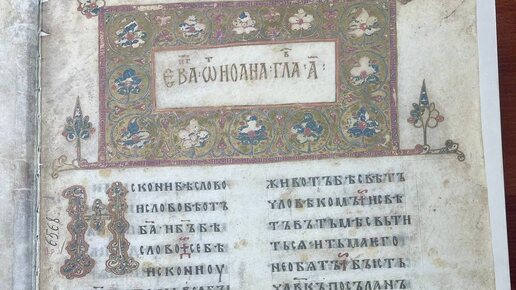 ЕВА·ѾИОАНА·ГЛА·А҃·
ИСКОНИБѢСЛОВО
ИСЛОВОБѢОТЪ
Б҃АИБ҃ЪБѢ
СЛОВО·СЕБѢ
ИСКОНИОУ
ЖИВОТЪБѢСВѢТЪ
ЧЛОВѢКОМЪ·ИСВѢ
ТЪВЪТЬМѢСВЬТИ
ТЬСѦ·ИТЬМАЕГО
НЕОБѦТЪ·БЫСТЪ
ЧЛ҃ВКЪПОСЪЛАНЪ